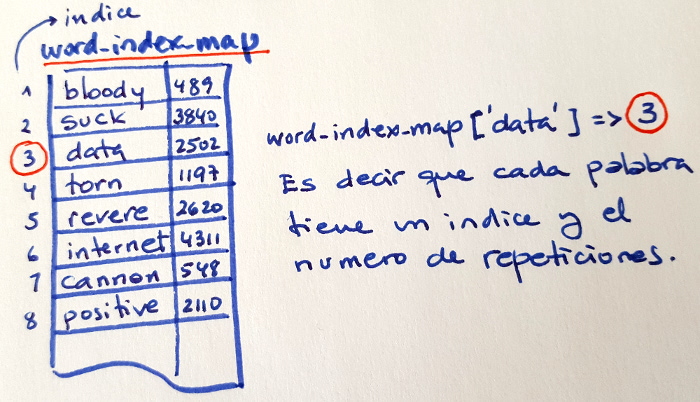 indice
word-index-map
1 bloody 489
2 suck 3840
3 data 2502
4 torn 1197
5 revere 2620
6 internet 4311
7 cannon 548
8 positive 2110
word-index-map ['data'] => 3
Es decir que cada palabra
tiene un indice y el
numero de repeticiones.